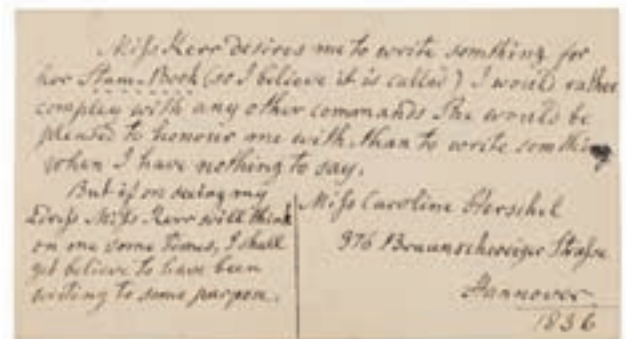 Miſs Kerr desires me to write somthing for
her Stam-Book (so I believe it is called) I would rather
compley with any other commands She would be
pleased to honour me with, than to write somthing
when I have nothing to say.
But if on seeing my
Miſs Kerr will think
on me some times, I shall
yet believe to have been
writing to some purpose.
Miſs Caroline Herschel
376 Braunschweiger Straſse
Hannover
1836